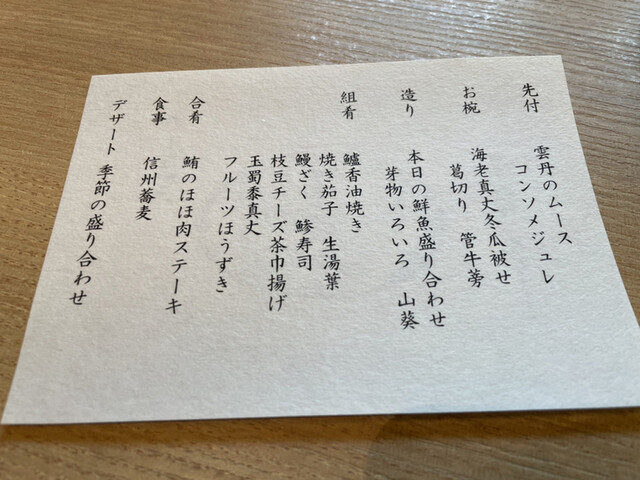 先付 雲丹のムース
コンソメジュレ
お椀 海老真丈冬瓜被せ
葛切り 管牛蒡
造り 本日の鮮魚盛り合わせ
芽物いろいろ 山葵
組肴 鱸香油焼き
焼き茄子 生湯葉
鰻ざく 鯵寿司
枝豆チーズ茶巾揚げ
玉蜀黍真丈
フルーツほうずき
合肴 鮪のほほ肉ステーキ
食事 信州蕎麦
デザート 季節の盛り合わせ